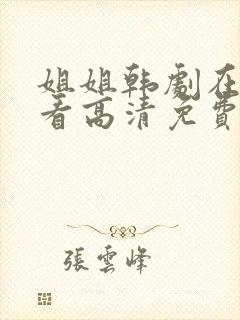 姐姐韩劇在
看高清免費
張雲峰